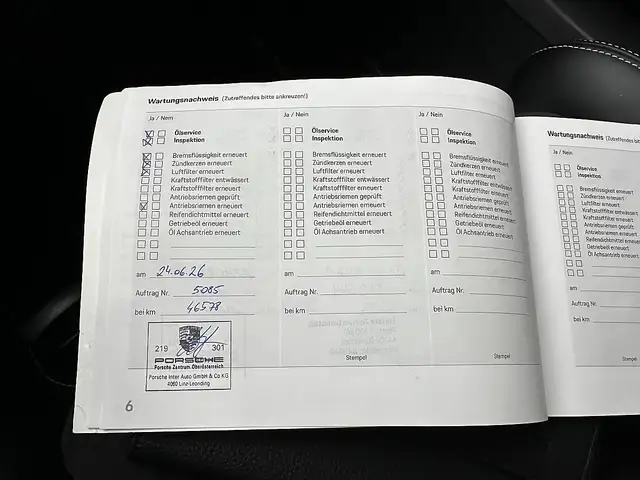 Wartungsnachweis (Zutreffendes bitte ankreuzen!)
Ja / Nein
Ölservice
Inspektion
Bremsflüssigkeit erneuert
Zündkerzen erneuert
Luftfilter erneuert
Kraftstofffilter entwässert
Kraftstofffilter erneuert
Antriebsriemen geprüft
Antriebsriemen erneuert
Reifendichtmittel erneuert
Getriebeöl erneuert
Öl Achsantrieb erneuert
am 24.06.26
Auftrag Nr. 5085
bei km 46578
219 301
PORSCHE
Porsche Zentrum Oberösterreich
Porsche Inter Auto GmbH & Co KG
4060 Linz-Leonding
6
Ja / Nein
Ölservice
Inspektion
Bremsflüssigkeit erneuert
Zündkerzen erneuert
Luftfilter erneuert
Kraftstofffilter entwässert
Kraftstofffilter erneuert
Antriebsriemen geprüft
Antriebsriemen erneuert
Reifendichtmittel erneuert
Getriebeöl erneuert
Öl Achsantrieb erneuert
am
Auftrag Nr.
bei km
Stempel
Ja / Nein
Ölservice
Inspektion
Bremsflüssigkeit erneuert
Zündkerzen erneuert
Luftfilter erneuert
Kraftstofffilter entwässert
Kraftstofffilter erneuert
Antriebsriemen geprüft
Antriebsriemen erneuert
Reifendichtmittel erneuert
Getriebeöl erneuert
Öl Achsantrieb erneuert
am
Auftrag Nr.
bei km
Stempel
Wartungsnachweis (Zutreffendes bitte
Ja / Nein
Ölservice
Inspektion
Bremsflüssigkeit erneuert
Zündkerzen erneuert
Luftfilter erneuert
Kraftstofffilter entwässert
Kraftstofffilter erneuert
Antriebsriemen geprüft
Antriebsriemen erneuert
Reifendichtmittel erneuert
Getriebeöl erneuert
Öl Achsantrieb erneuert
am
Auftrag Nr.
bei km